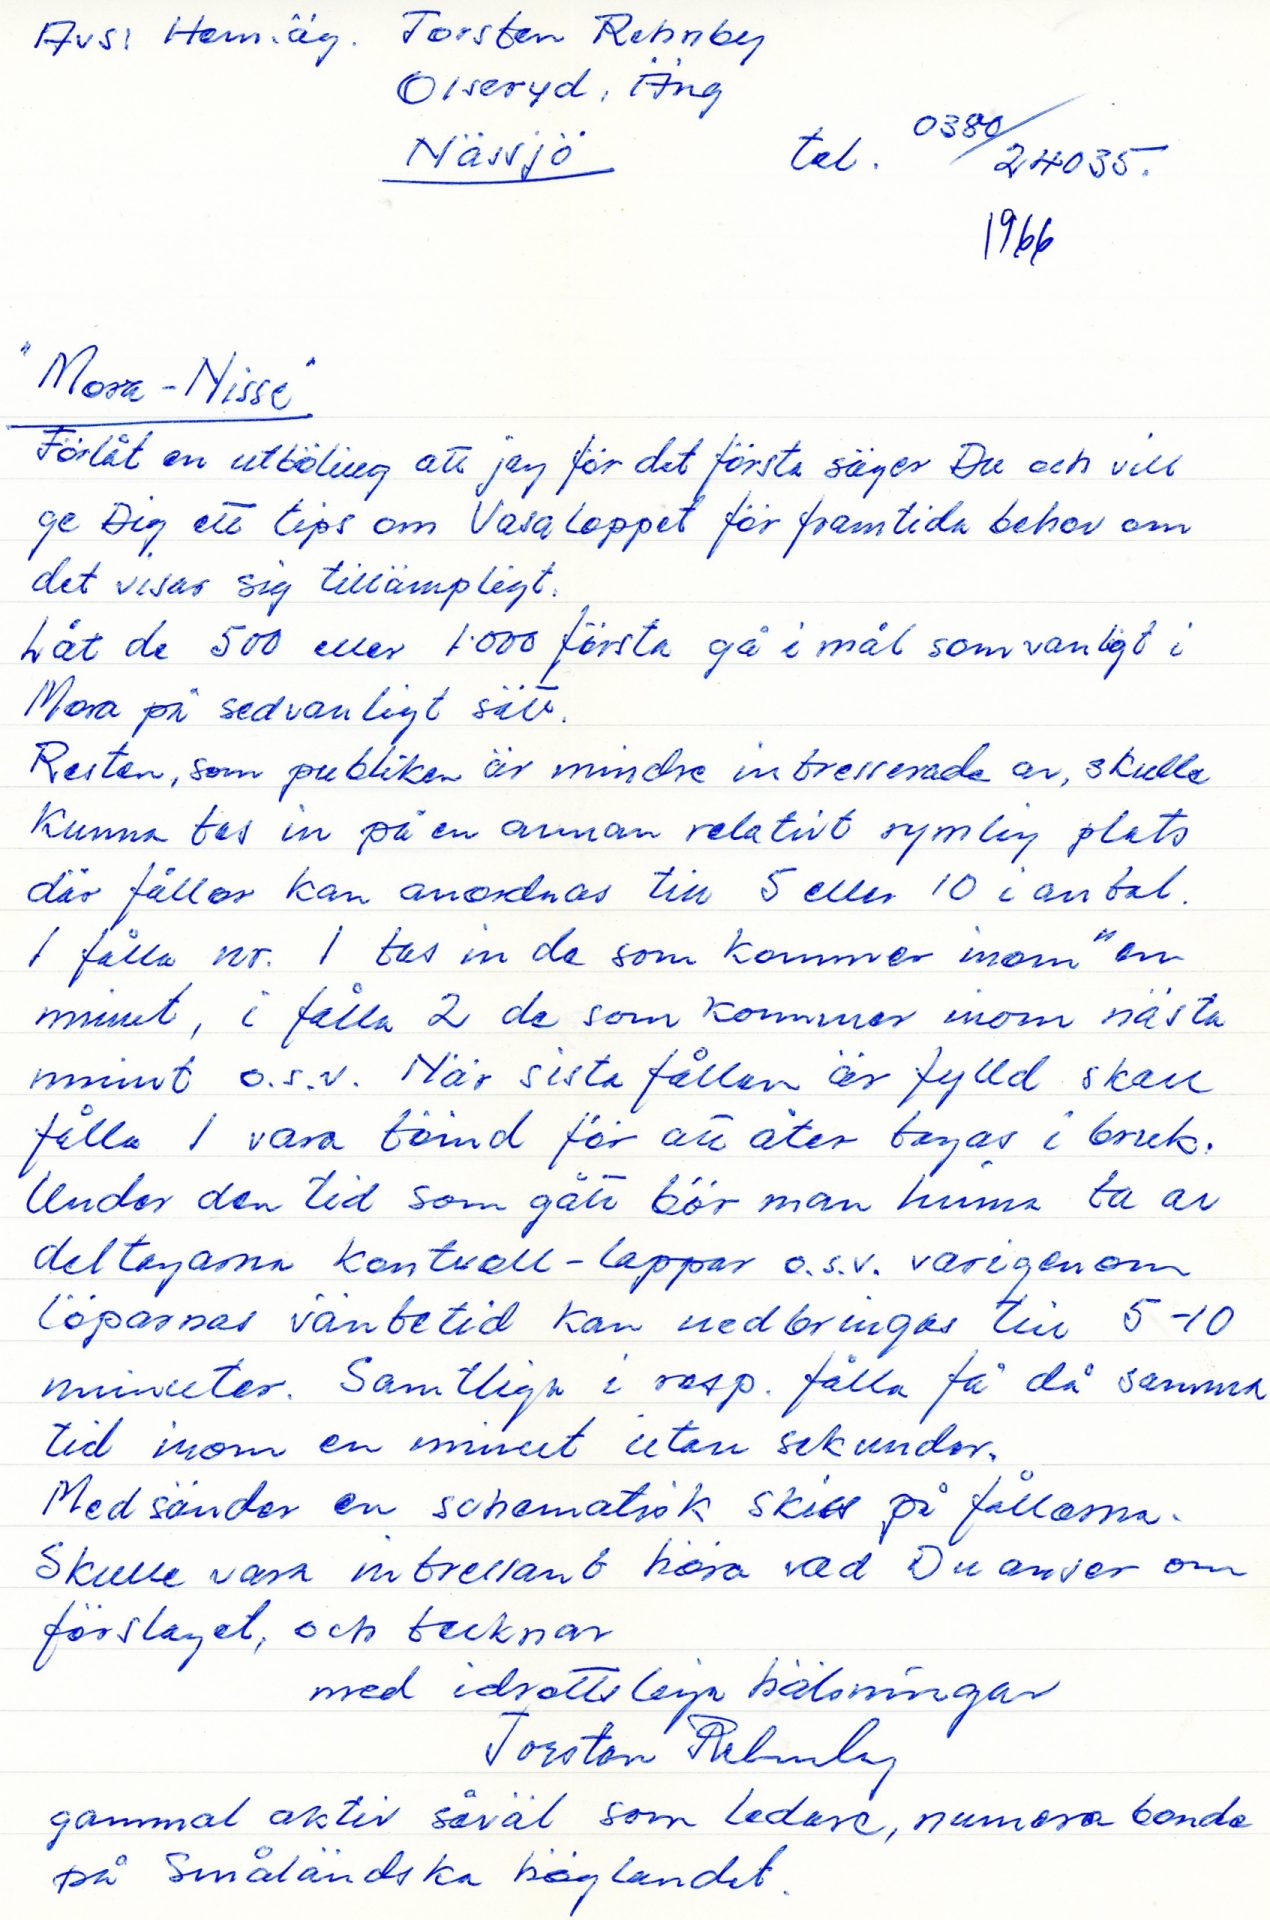 Avs: Hem.äg. Torsten Rehnby
Olseryd, Äng
Nässjö
tel. 0380/24035.
1966
"Mora-Nisse"
Förlåt en utböling att jag för det första säger Du och vill
ge Dig ett tips om Vasaloppet för framtida behov om
det visar sig tillämpligt.
Låt de 500 eller 1.000 första gå i mål som vanligt i
Mora på sedvanligt sätt.
Resten, som publiken är mindre intresserade av, skulle
kunna tas in på en annan relativt rymlig plats
där fållor kan anordnas till 5 eller 10 i antal.
I fålla nr. 1 tas in de som kommer inom "en
minut, i fålla 2 de som kommer inom nästa
minut o.s.v. När sista fållan är fylld skall
fålla 1 vara tömd för att åter tagas i bruk.
Under den tid som gått bör man hinna ta av
deltagarna kontroll-lappar o.s.v. varigenom
löparnas väntetid kan nedbringas till 5-10
minuter. Samtliga i resp. fålla få då samma
tid inom en minut utan sekunder.
Medsänder en schematisk skiss på fållorna.
Skulle vara intressant höra vad Du anser om
förslaget, och tecknar
med idrottsliga hälsningar
Torsten Rehnby
gammal aktiv såväl som ledare, numera bonde
på Småländska höglandet.